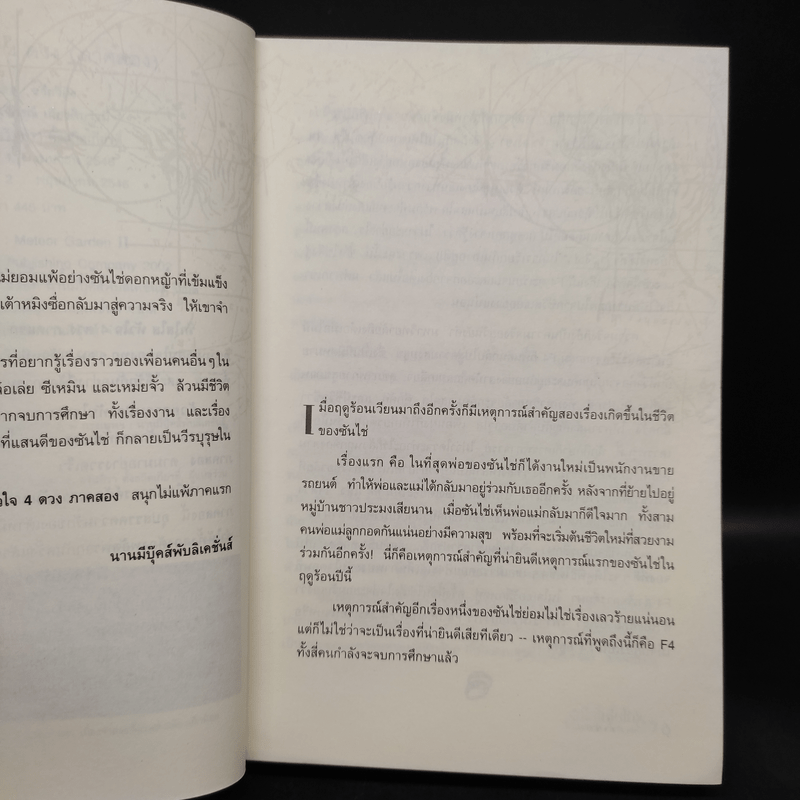 ม่ยอมแพ้อย่างซันไช่ดอกหญ้าที่เข้มแข็ง
เต้าหมิงซื่อกลับมาสู่ความจริง ให้เขาจำ
รที่อยากรู้เรื่องราวของเพื่อนคนอื่นๆใน
ล่อเล่ย ซีเหมิน และเหม่ยจั้ว ล้วนมีชีวิต
ากจบการศึกษา ทั้งเรื่องงาน และเรื่อง
ที่แสนดีของซันไช่ ก็กลายเป็นวีรบุรุษใน
ใจ 4 ดวง ภาคสอง สนุกไม่แพ้ภาคแรก
นานมีบุ๊คส์พับลิเคชั่นส์
เมื่อฤดูร้อนเวียนมาถึงอีกครั้งก็มีเหตุการณ์สำคัญสองเรื่องเกิดขึ้นในชีวิต
ของซันไช่
เรื่องแรก คือ ในที่สุดพ่อของซันไช่ก็ได้งานใหม่เป็นพนักงานขาย
รถยนต์ ทำให้พ่อและแม่ได้กลับมาอยู่ร่วมกับเธออีกครั้ง หลังจากที่ย้ายไปอยู่
หมู่บ้านชาวประมงเสียนาน เมื่อซันไช่เห็นพ่อแม่กลับมาก็ดีใจมาก ทั้งสาม
คนพ่อแม่ลูกกอดกันแน่นอย่างมีความสุข พร้อมที่จะเริ่มต้นชีวิตใหม่ที่สวยงาม
ร่วมกันอีกครั้ง! นี่ก็คือเหตุการณ์สำคัญที่น่ายินดีเหตุการณ์แรกของซันไช่ใน
ฤดูร้อนปีนี้
เหตุการณ์สำคัญอีกเรื่องหนึ่งของซันไช่ย่อมไม่ใช่เรื่องเลวร้ายแน่นอน
แต่ก็ไม่ใช่ว่าจะเป็นเรื่องที่น่ายินดีเสียทีเดียว -- เหตุการณ์ที่พูดถึงนี้ก็คือ F4
ทั้งสี่คนกำลังจะจบการศึกษาแล้ว